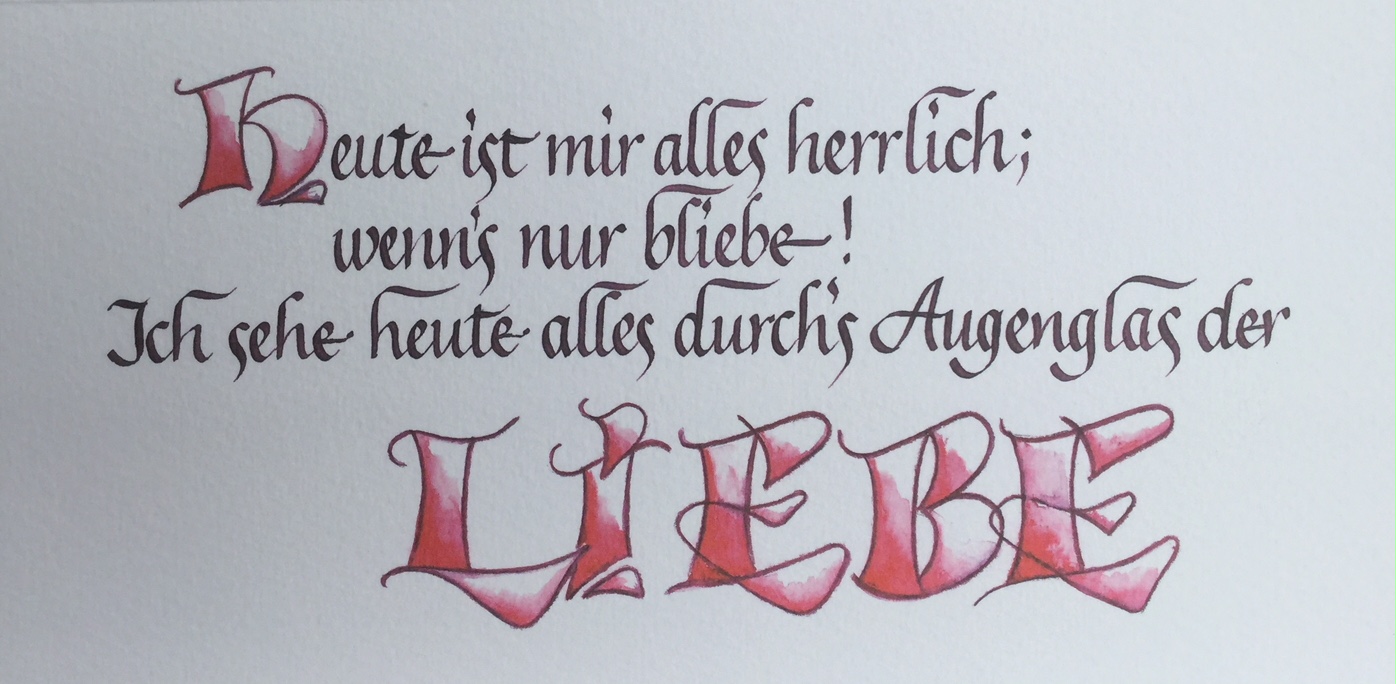 Heute ist mir alles herrlich;
wenn's nur bliebe!
Ich sehe heute alles durch's Augenglas der
LiEBE